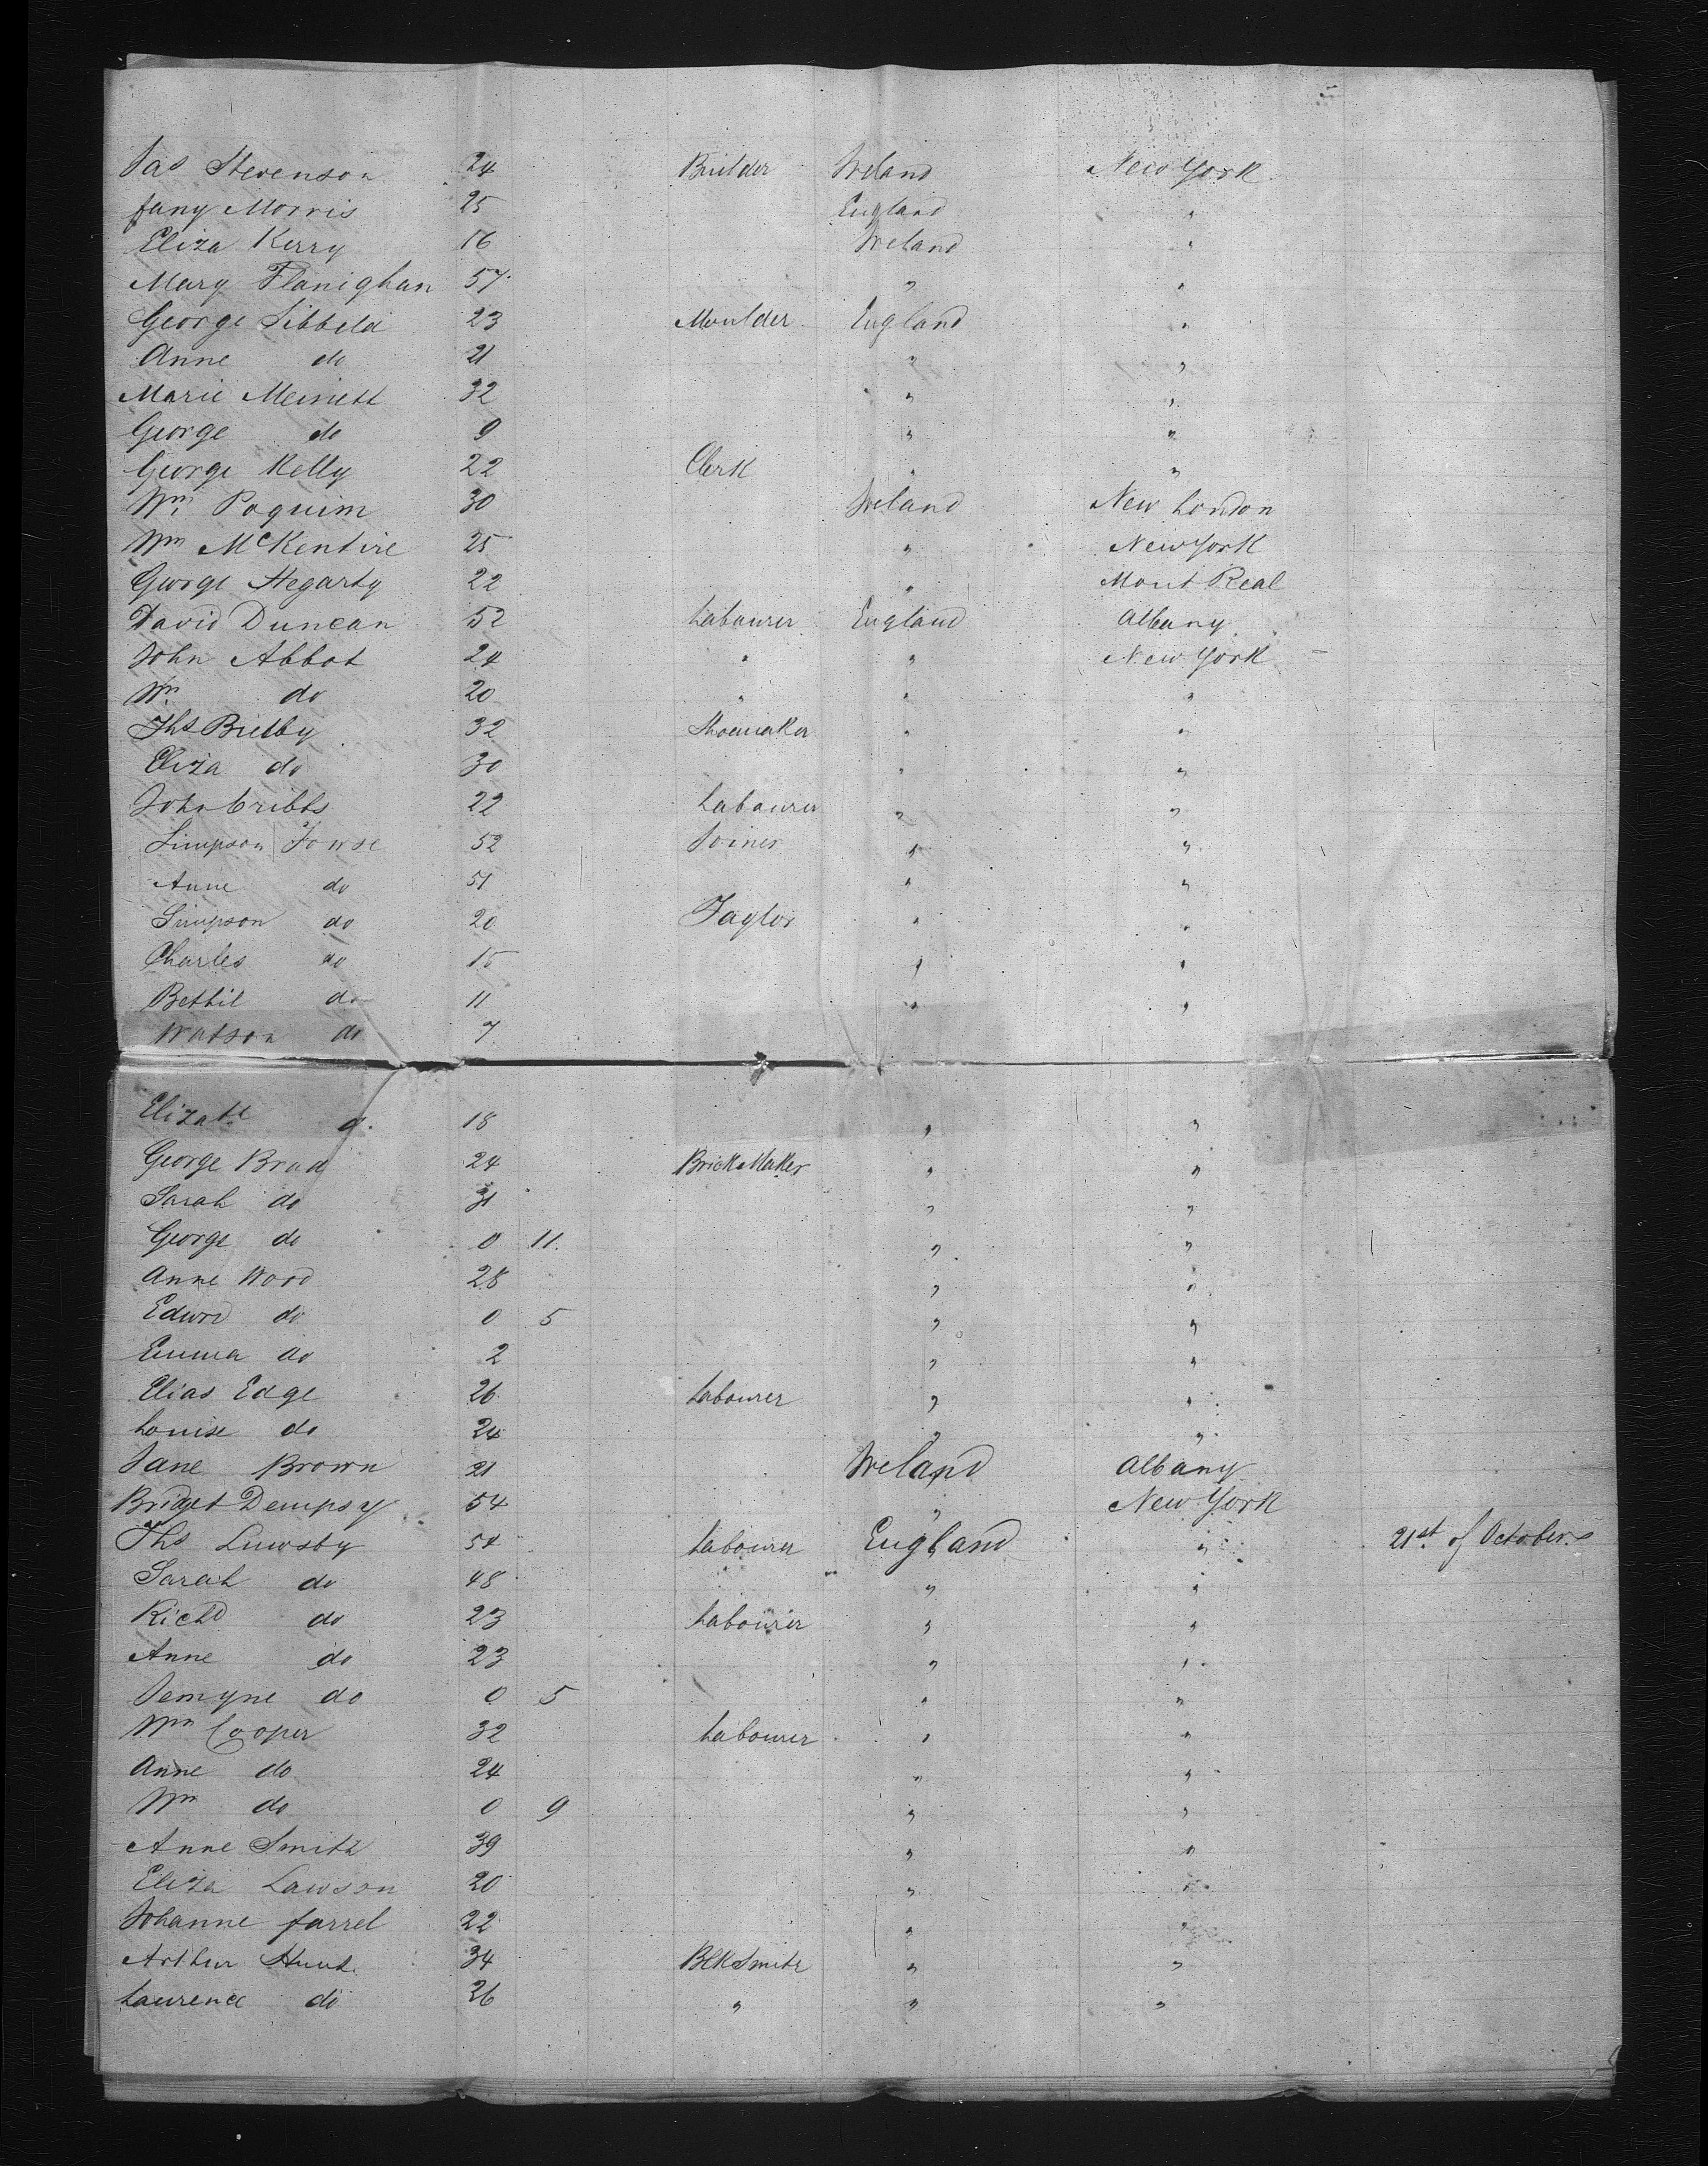 Jas Stevenson 24 Builder Ireland New York
fany Morris 25 England "
Eliza Kerry 16 Ireland "
Mary Flanighan 57 " "
George Sibbeld 23 Moulder England "
Anne do 21 " "
Marie 32 " "
George do 9 " "
George Kelly 22 Clerk " "
Wm Poquim 30 Ireland New London
Wm McKentire 25 " New York
George Hegarty 22 " Mont Real
David Duncan 52 Labourer England Albany
John Abbot 24 " " New York
Wm do 20 " " "
Ths Bielby 32 Shoemaker " "
Eliza do 30 " "
John Cribbs 22 Labourer " "
Simpson Fowse 52 Joiner " "
Anne do 51 " "
Simpson do 20 Taylor " "
Charles do 15 " "
Bethil do 11 " "
Watson do 7
Elizabt do 18 " "
George Brad 24 Brick Maker " "
Sarah do 31 " "
George do 0 11 " "
Anne Wood 28 " "
Edwrd do 0 5 " "
Emma do 2 " "
Elias Edge 26 Labourer " "
Louise do 24 " "
Jane Brown 21 Ireland Albany
Bridget Dempsy 54 " New York
Ths Luwsby 54 Labourer England " 21st of October
Sarah do 48 " "
Richd do 23 Labourer " "
Anne do 23 " "
Jemyne do 0 5 " "
Wm Cooper 32 Labourer " "
Anne do 24 " "
Wm do 0 9 " "
Anne Smith 39 " "
Eliza Lawson 20 " "
Johanne farrel 22 " "
Arthur Hunt 34 Blk Smith " "
Laurence do 26 " " "